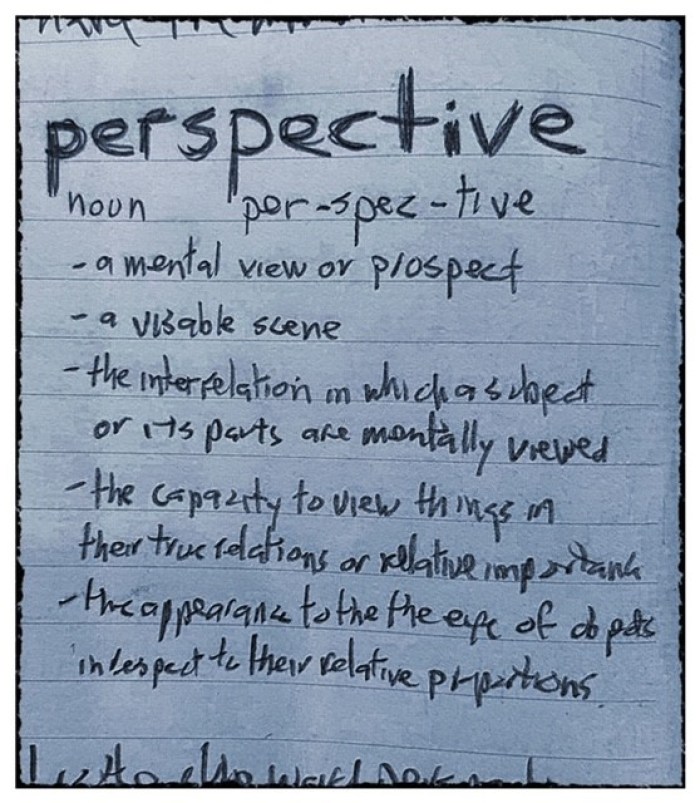 perspective
noun per-spec-tive
- a mental view or prospect
- a visable scene
- the interrelation in which a subject
or its parts are mentally viewed
- the capacity to view things in
their true relations or relative importance
- the appearance to the the eye of objects
in respect to their relative proportions